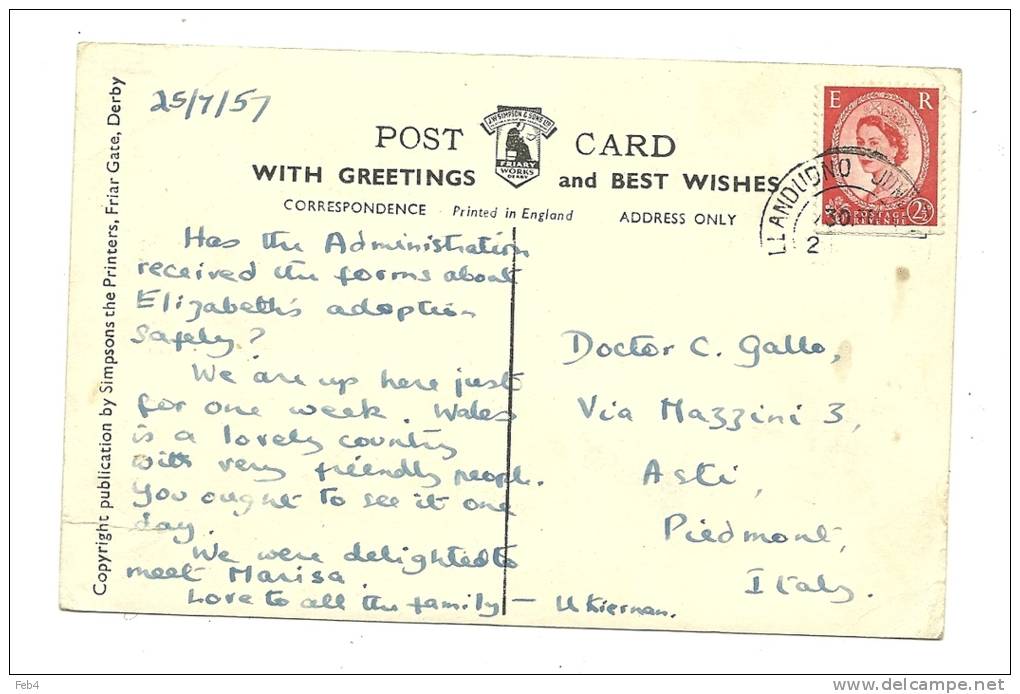 25/7/57
POST CARD
J.W. SIMPSON & SONS LTD
FRIARY
WORKS
DERBY
WITH GREETINGS and BEST WISHES
CORRESPONDENCE Printed in England ADDRESS ONLY
E R
2½
POSTAGE
REVENUE
LLANDUDNO JUN
30
2
Has the Administration
received the forms about
Elizabeth's adoption
safely?
We are up here just
for one week. Wales
is a lovely country
with very friendly people.
You ought to see it one
day.
We were delighted to
meet Marisa.
Love to all the family — U Kiernan.
Doctor C. Gallo,
Via Mazzini 3,
Asti,
Piedmont,
Italy.
Copyright publication by Simpsons the Printers, Friar Gate, Derby
Feb4
www.delcampe.net